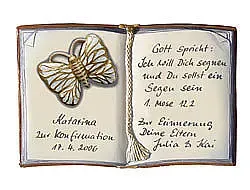 Katarina
Zur Konfirmation
17. 4. 2006
Gott spricht:
Ich will Dich segnen
und Du sollst ein
Segen sein
1. Mose 12.2
Zur Erinnerung
Deine Eltern
Julia & Kai